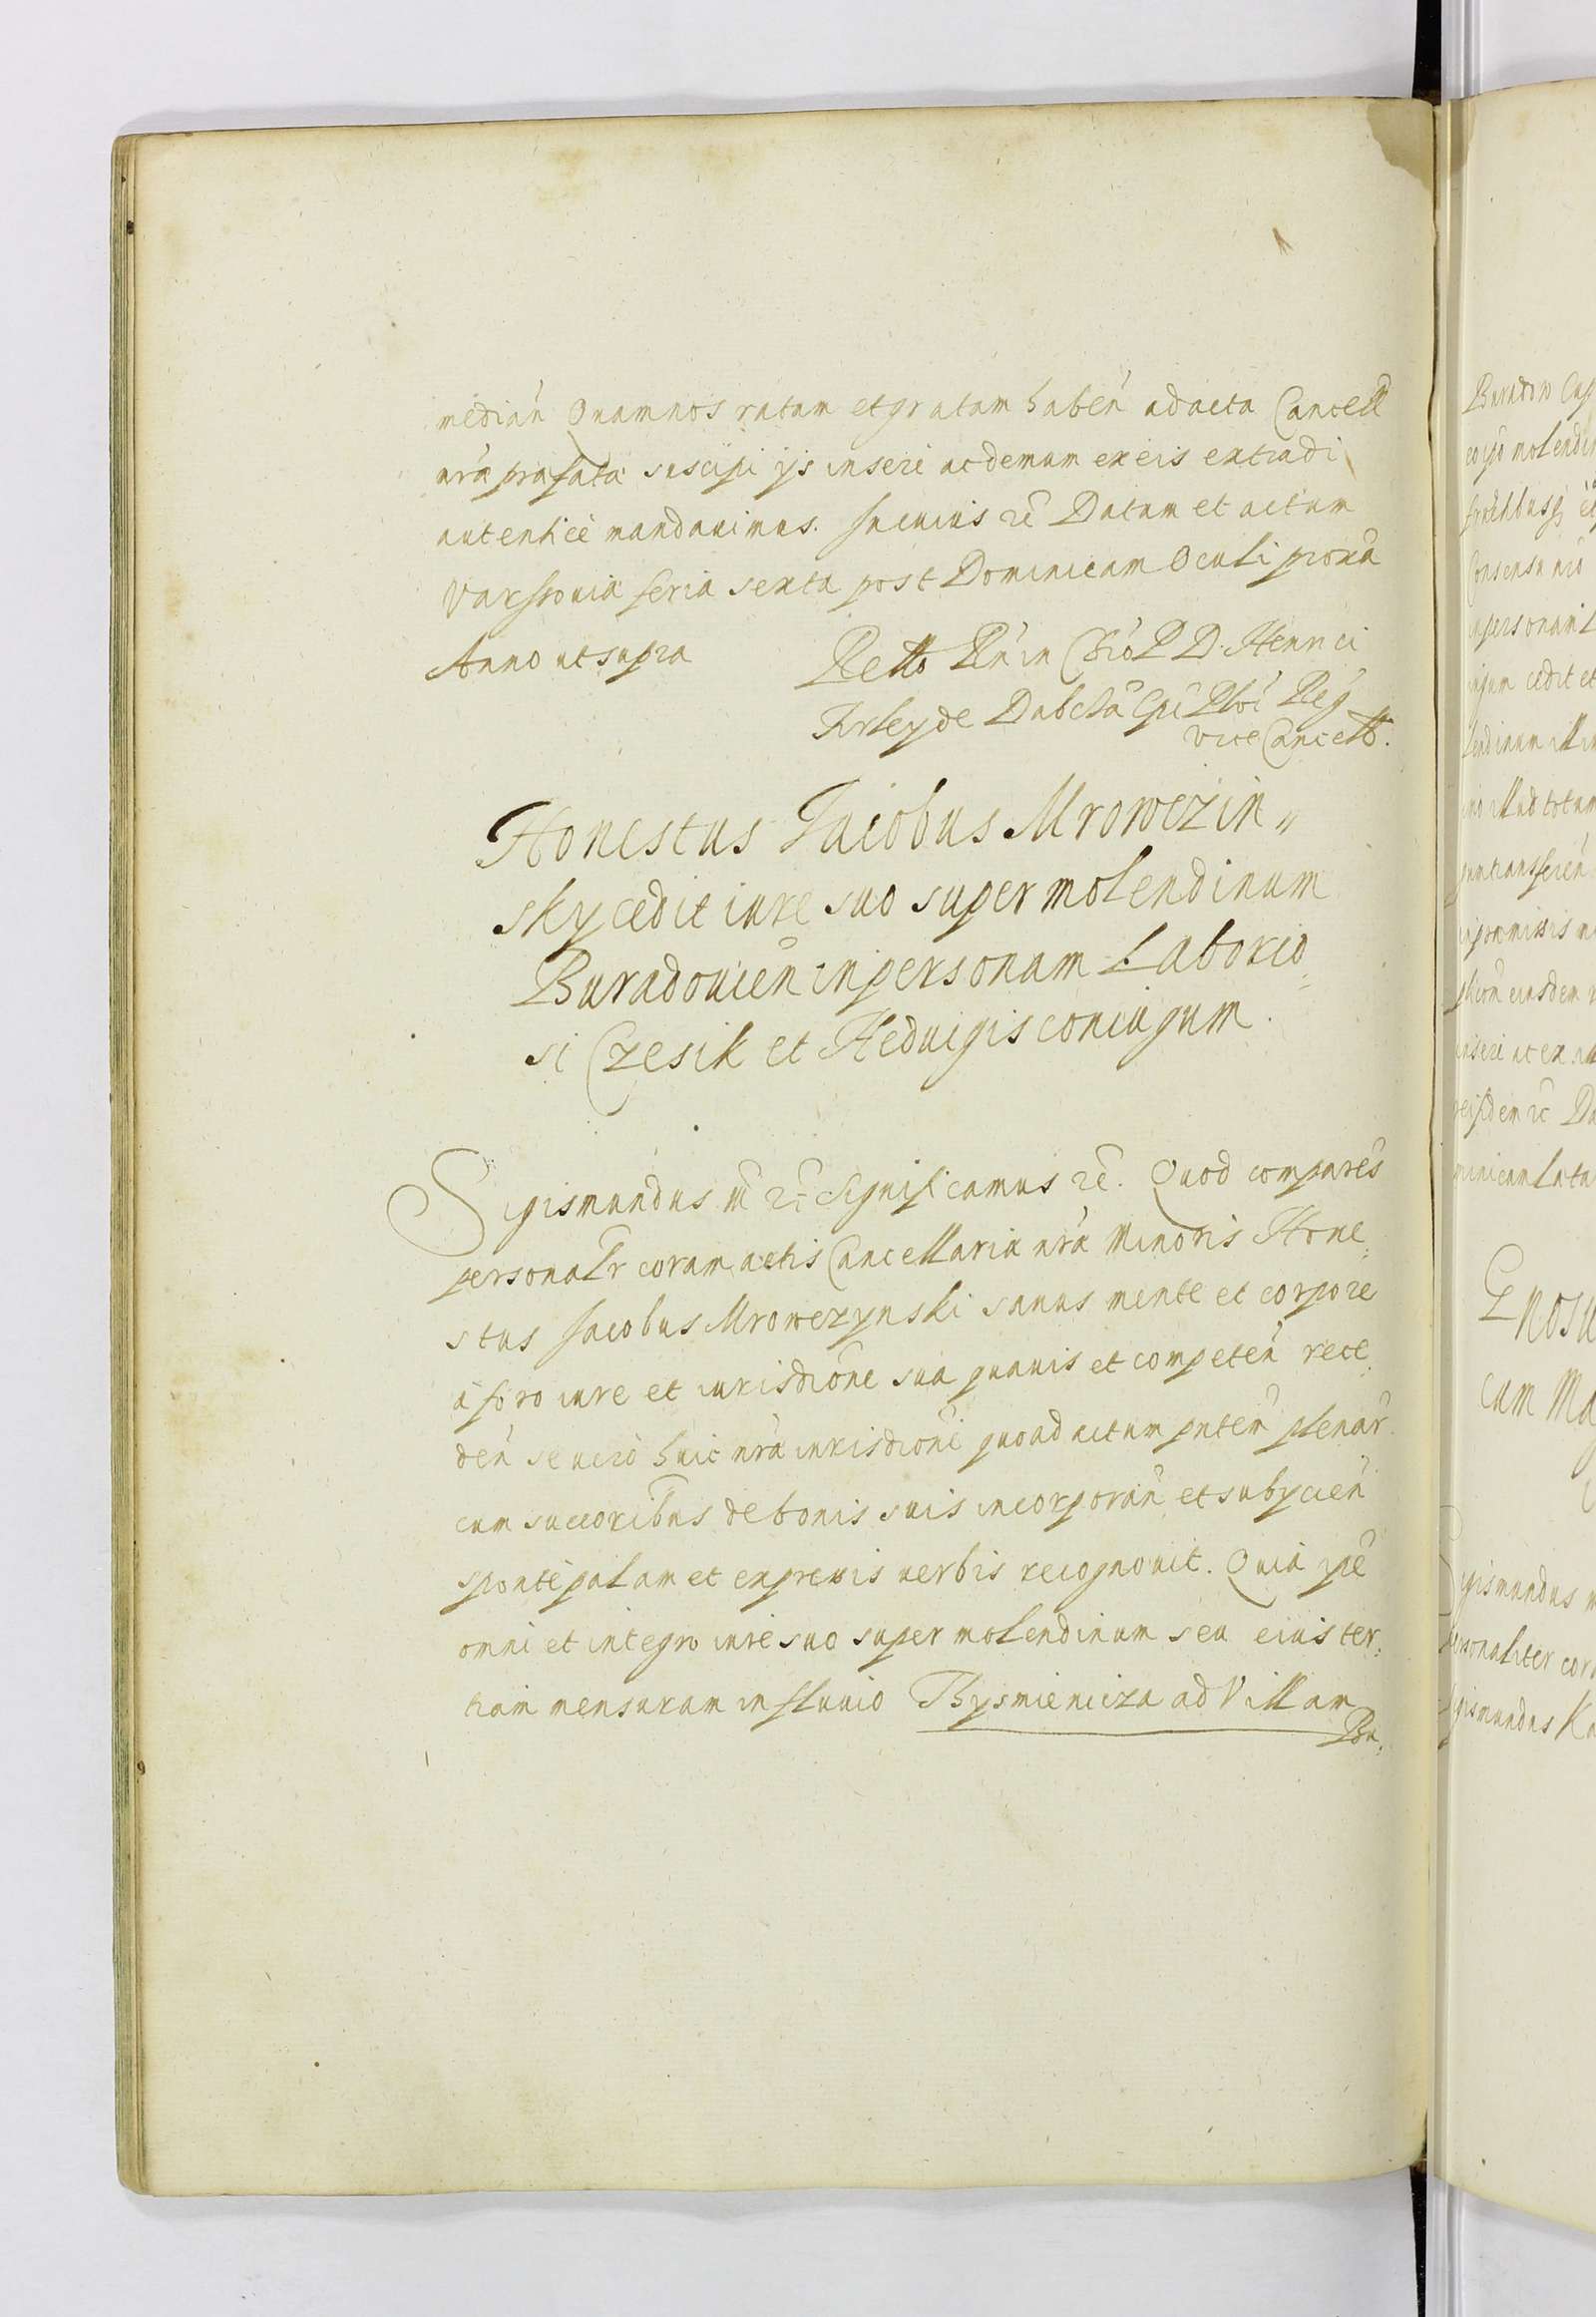 median Quam nos ratam et gratam haben ad acta Cancell
nrã præfata suscipi ijs inseri ac demum ex eis extradi
autentice mandauimus. In cuius rē Datum et actum
Varssouiæ feria sexta post Dominicam Oculi proxã
Anno ut supra
Retto Rñ in Chrõ P D. Henrici
Firley de Dabrouã Epi Ploc Reg
vice Cancell.
Honestus Jacobus Mrowczin„
sky cedit iure suo super molendinum
Buradouien in personam Laborio
si Czesik et Heduigis coniugum.
Sigismundus III rc Significamus rē. Quod comparēs
personalr coram actis Cancellariæ nrã Minoris Hone
stus Jacobus Mrowczynski sanus mente et corpore
a foro iure et iurisdione sua quauis et competen rece
den se uero huic nrã iurisdioni quoad actum pntem plenar
cum succoribus de bonis suis incorporan et subycien
sponte palam et expressis uerbis recognouit. Quia ipe
omni et integro iure suo super molendinum seu eius ter
tiam mensuram in fluuio Thysmienicza ad Villam
Bu
Buradow
eo ipo molendin
Consensu nro
in personam L
cedit et
illud totum
inseri ac ex
Sigismundus
personaliter cor
Sigismundus Ka
cum Ma